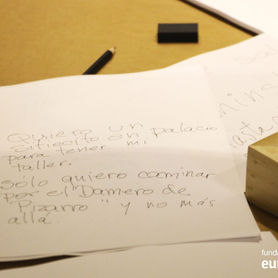 Quiero un
sitiecito en palacio
para tener mi
taller.
sólo quiero caminar
por el "Damero de
Pizarro" y no más
allá.
fund
eu